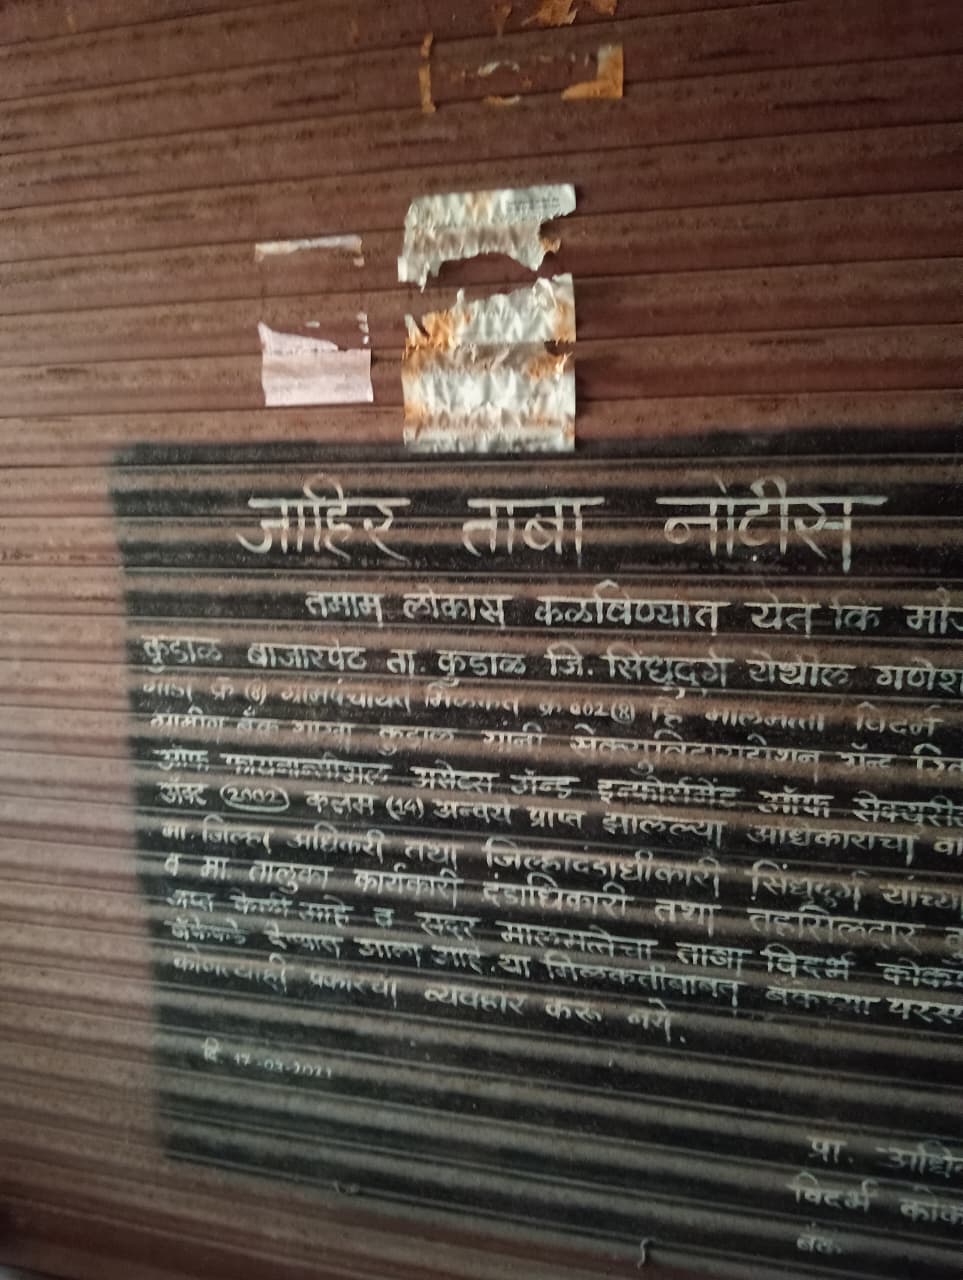 जाहिर ताबा नोटीस
तमाम लोकास कळविण्यात येते कि मौज
कुडाळ बाजारपेठ ता. कुडाळ जि. सिंधुदुर्ग येथील गणेश
गाळा क्र (8) ग्रामपंचायत मिळकत क्र 602(8) हि मालमत्ता विदर्भ
ग्रामीण बँक शाखा कुडाळ यांनी सेक्युरिटायटेशन अॅन्ड
ऑफ फायनान्सीअल असेटस अॅन्ड इन्फोर्समेंट ऑफ
अॅक्ट (2002) कलम (14) अन्वये प्राप्त झालेल्या अधिकाराचा
मा. जिल्हा अधिकारी तथा जिल्हादंडाधीकारी सिंधुदुर्ग यांच्या
व मा. तालुका कार्यकारी दंडाधिकारी तथा तहसिलदार
जप्त केली आहे व सदर मालमत्तेचा ताबा विदर्भ कोकण
बँकेकडे देण्यात आला आहे. या मिळकतीबाबत बँकेच्या परस्प
कोणत्याही प्रकारचा व्यवहार करू नये.
दि. 17-03-2021
प्रा. अधि
विदर्भ कोक
बँक